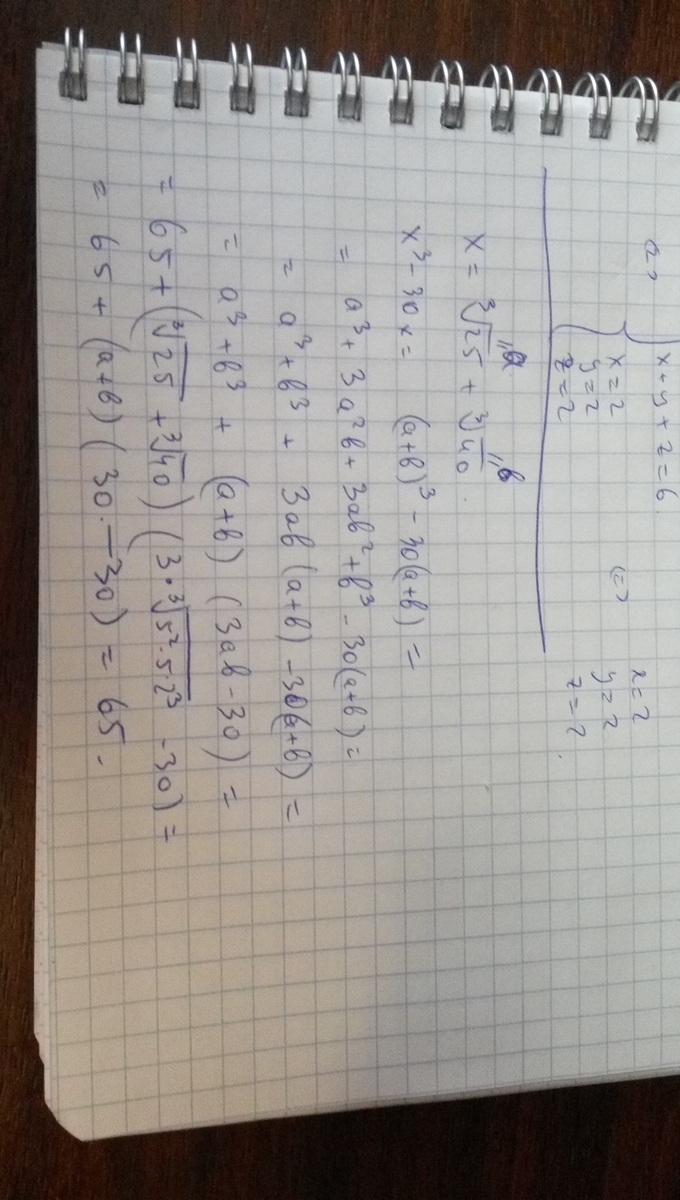 x + y + z = 6.
<=> { x = 2 y = 2 z = 2 <=> x = 2 y = 2 z = 2.
x = ∛25 "a + ∛40 "b.
x³ - 30x = (a+b)³ - 30(a+b) =
= a³ + 3a²b + 3ab² + b³ - 30(a+b) =
= a³ + b³ + 3ab(a+b) - 30(a+b) =
= a³ + b³ + (a+b)(3ab - 30) =
= 65 + (∛25 + ∛40)(3·∛5²·5·2³ - 30) =
= 65 + (a+b)(30 - 30) = 65.